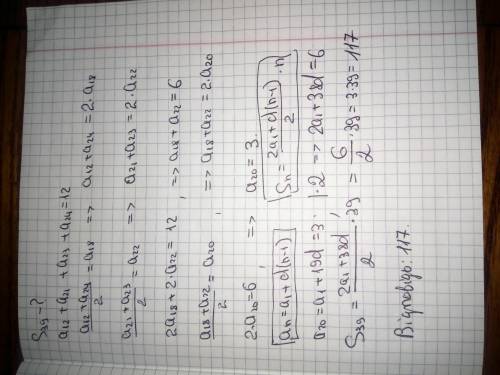 S₃₉ - ?
a₁₂ + a₂₁ + a₂₃ + a₂₄ = 12
(a₁₂ + a₂₄)/2 = a₁₈ => a₁₂ + a₂₄ = 2·a₁₈
(a₂₁ + a₂₃)/2 = a₂₂ => a₂₁ + a₂₃ = 2·a₂₂
2a₁₈ + 2·a₂₂ = 12, => a₁₈ + a₂₂ = 6
(a₁₈ + a₂₂)/2 = a₂₀, => a₁₈ + a₂₂ = 2·a₂₀
2·a₂₀ = 6, => a₂₀ = 3.
aₙ = a₁ + d(n-1) Sₙ = (2a₁ + d(n-1))/2 · n
a₂₀ = a₁ + 19d = 3; |·2 => 2a₁ + 38d = 6
S₃₉ = (2a₁ + 38d)/2 · 39 = 6/2 · 39 = 3·39 = 117
Відповідь: 117.